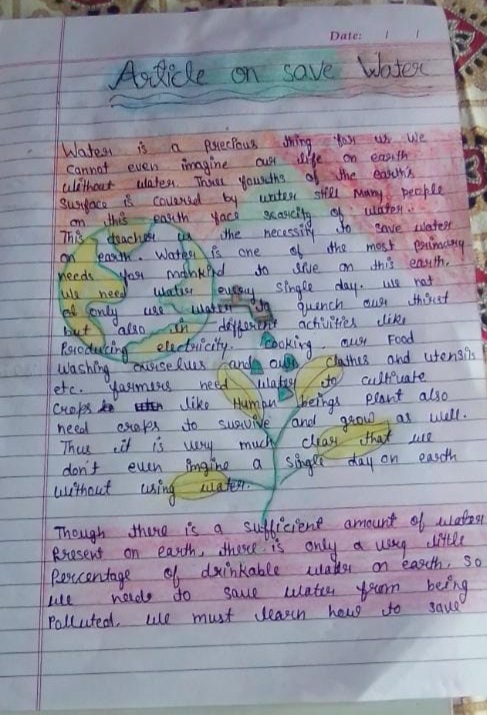 Date: / /
Article on save Water
Water is a precious thing for us we
cannot even imagine our life on earth
without water. Three fourths of the earth's
surface is covered by water still Many people
on this earth face scarcity of water.
This teacher us the necessity to save water
on earth. Water is one of the most primary
needs for mankind to live on this earth.
We need water every single day. we not
only use water to quench our thirst
but also in different activities like
Producing electricity. Cooking, our Food
Washing ourselves and our clothes and utensils
etc. farmers need water to cultivate
crops like Human beings plant also
need craps to survive and grow as well.
Thus it is very much clear that we
don't even imgine a single day on earth
without using water.
Though there is a sufficient amount of water
Present on earth, there is only a very little
Percentage of drinkable water on earth. So
we needs to save water from being
Polluted. we must learn how to save